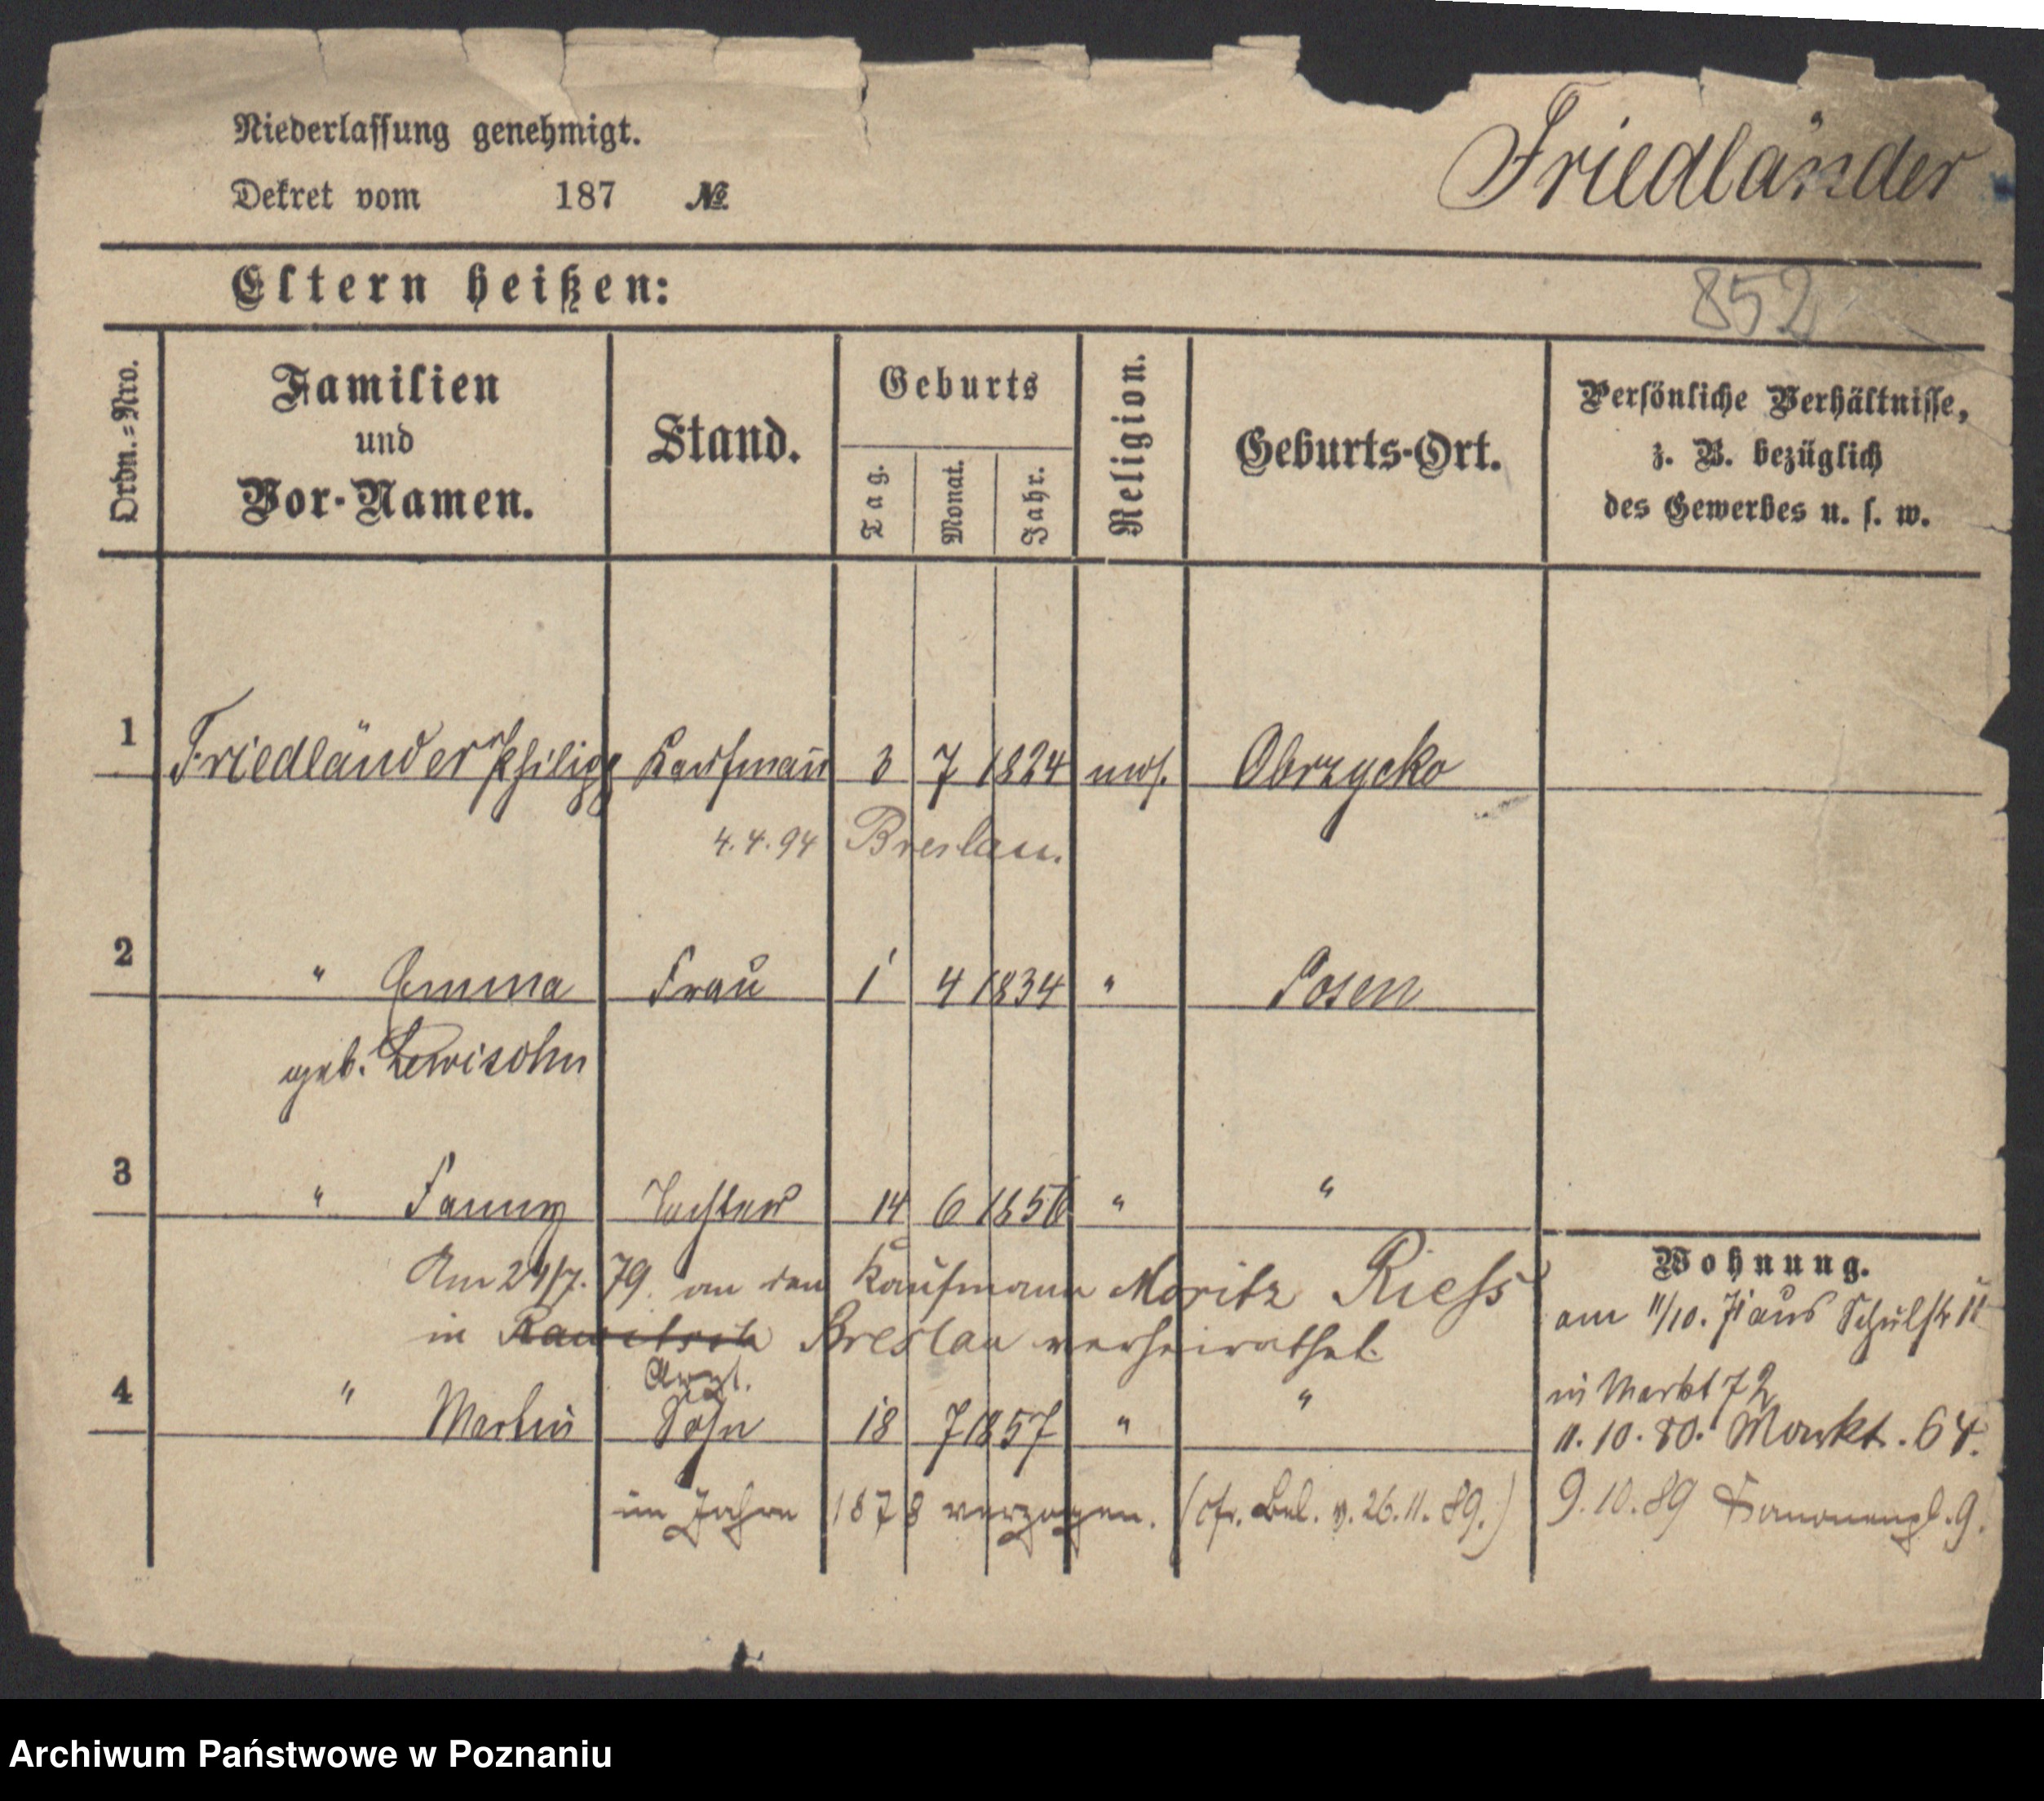 Niederlassung genehmigt.
Dekret vom 187 №
Friedländer
Eltern heißen:
852
Ordn.=Nro.
Familien
und
Vor-Namen.
Stand.
Geburts
Tag.
Monat.
Jahr.
Religion.
Geburts-Ort.
Persönliche Verhältnisse,
z. B. bezüglich
des Gewerbes u. s. w.
1 Friedländer Philipp Kaufmann 3 7 1824 mos. Obrzycko
4.4.94 Breslau.
2 " Emma Frau 1 4 1834 " Posen
geb. Lewisohn
3 " Fanny Tochter 14 6 1856 " "
Am 24/7. 79. an den Kaufmann Moritz Riess
in Rawitsch Breslau verheirathet.
Arzt.
4 " Martin Sohn 18 7 1857 " "
im Jahre 1878 verzogen. (cfr. Bel. v. 26.11.89.)
Wohnung.
am 11/10. 71 aus Schulstr 11
in Markt 72
11.10.80. Markt. 64.
9.10.89 9.
Archiwum Państwowe w Poznaniu